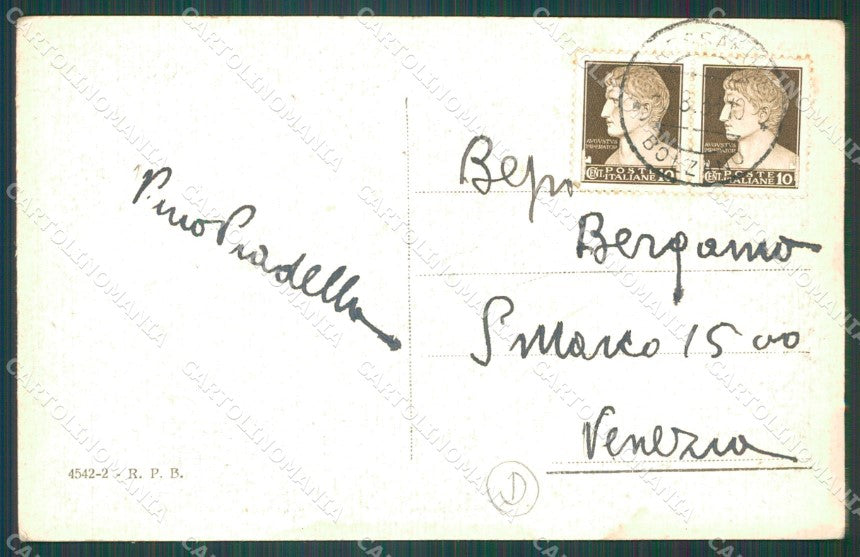 Pino Pradella
Bepi
Bergamo
S Marco 1500
Venezia
AVGVSTVS
IMPERATOR
CENT. POSTE 10
ITALIANE
AVGVSTVS
IMPERATOR
CENT. POSTE 10
ITALIANE
BOLZANO
4542-2 - R. P. B.
D
CARTOLINOMANIA